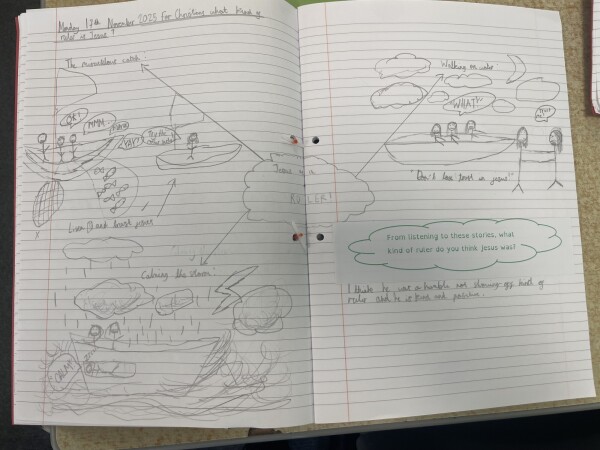 Monday 13th November 2023 for Christians what kind of
ruler is Jesus?
The miraculous catch.
OK!
MMM..
YAY!
Listen and trust jesus
Calming the storm
CALM
Jesus is a
RULER!
Walking on water
WHAT!?
"Don't lose trust in jesus!"
From listening to these stories, what
kind of ruler do you think Jesus was?
I think he was a humble not showing off kind of
ruler and he is kind and